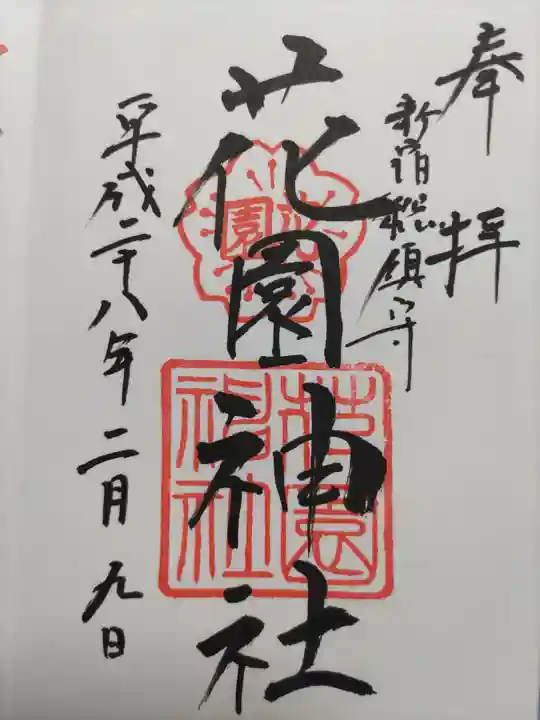 奉拝
新宿総鎮守
花園神社
花園
花園神社
平成二十八年二月九日